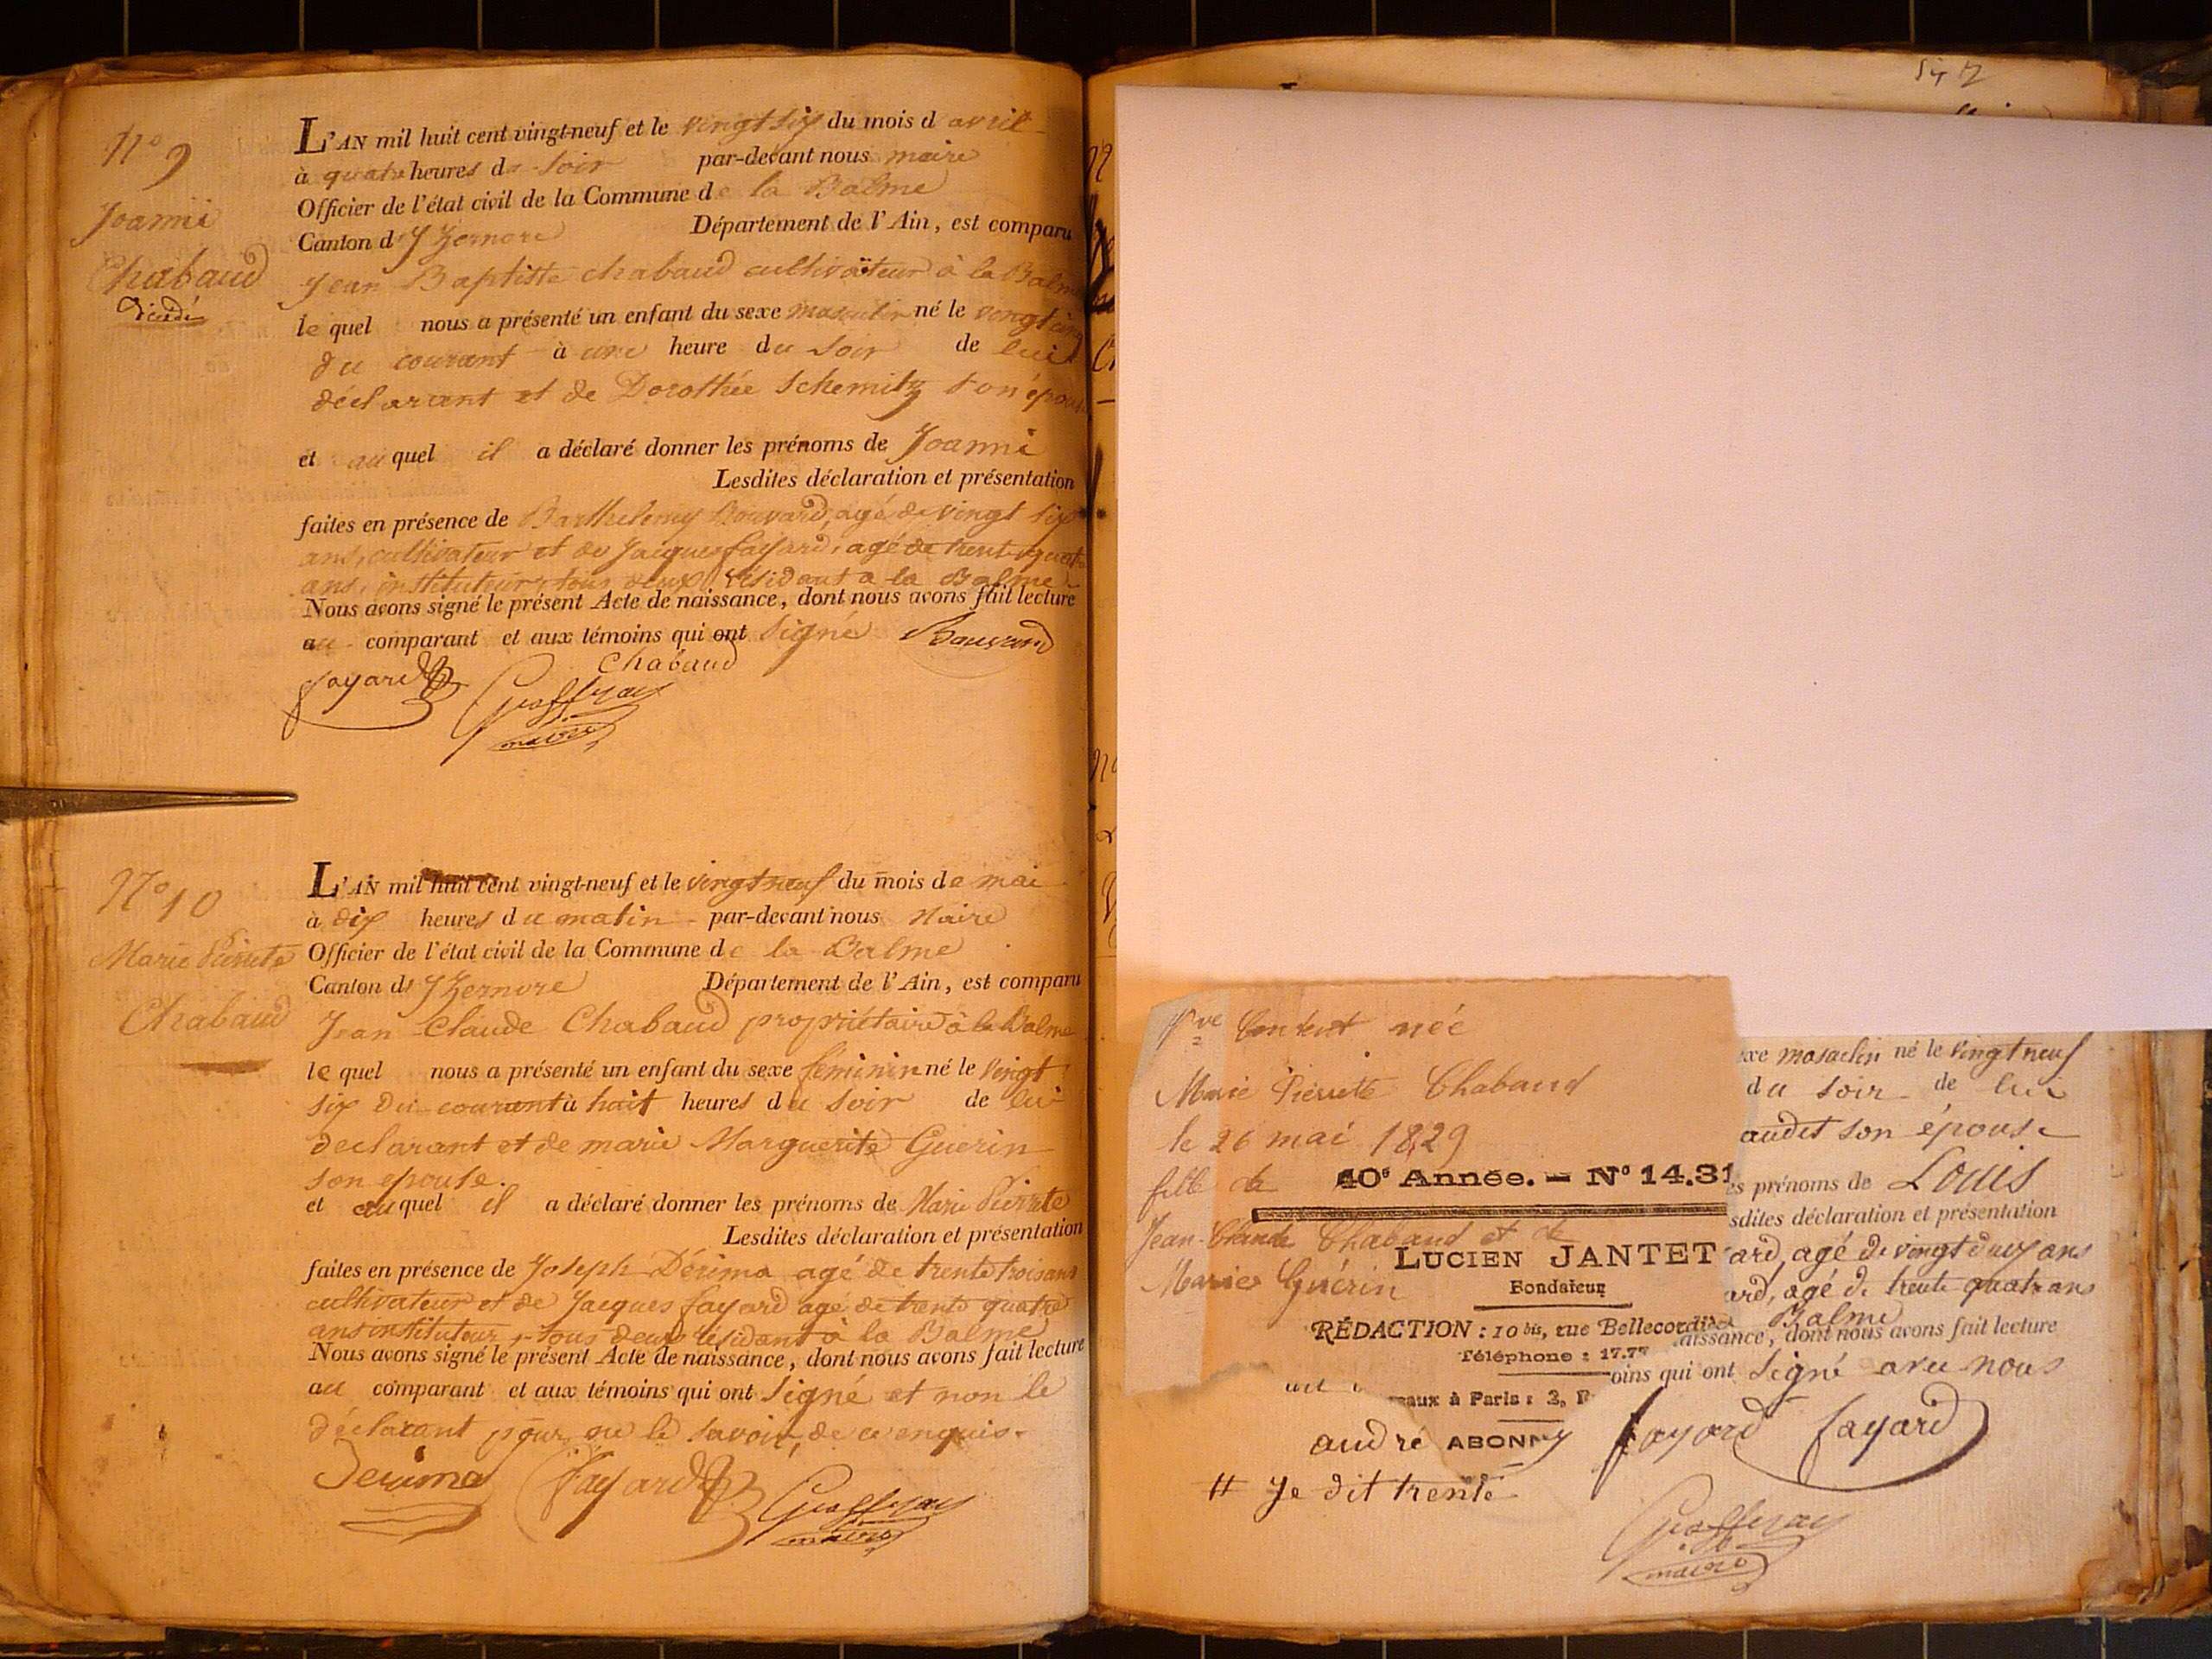 N° 9
Joanni
Chabaud
décédé
L'AN mil huit cent vingt-neuf et le vingt six du mois d avril
à quatre heures du soir par-devant nous maire
Officier de l'état civil de la Commune de la Balme
Canton d'Yzernore Département de l'Ain, est comparu
Jean Baptiste chabaud cultivateur à la Balme
le quel nous a présenté un enfant du sexe masculin né le vingt cinq
du courant à une heure du soir de lui
déclarant et de Dorothée Schemitz son épouse
et au quel il a déclaré donner les prénoms de Joanni
Lesdites déclaration et présentation
faites en présence de Barthelemy Bouvard, agé de vingt six
ans, cultivateur et de Jacques fayard, agé de trente quatre
ans, instituteur, tous deux résidant à la Balme
Nous avons signé le présent Acte de naissance, dont nous avons fait lecture
au comparant et aux témoins qui ont signé Bouvard
Chabaud
fayard
maire
N° 10
Marie Pierrette
Chabaud
L'AN mil huit cent vingt-neuf et le vingt neuf du mois de mai
à dix heures du matin par-devant nous Maire
Officier de l'état civil de la Commune de la Balme
Canton d'Yzernore Département de l'Ain, est comparu
Jean Claude Chabaud propriétaire à la Balme
le quel nous a présenté un enfant du sexe féminin né le vingt
six du courant à huit heures du soir de lui
declarant et de marie Marguerite Guerin
son epouse.
et auquel il a déclaré donner les prénoms de Marie Pierrette
Lesdites déclaration et présentation
faites en présence de Joseph Dérima agé de trente trois ans
cultivateur et de Jacques fayard agé de trente quatre
ans instituteur, tous deux résidant à la Balme
Nous avons signé le présent Acte de naissance, dont nous avons fait lecture
au comparant et aux témoins qui ont signé et non le
déclarant pour ne le savoir, de ce enquis.
Derima fayard
maire
Vve Contest née
Marie Pierrette Chabaud
le 26 mai 1829
fille de
Jean-Claude Chabaud et de
Marie Guérin
40e Année. - N° 14.31
LUCIEN JANTET
Fondateur
RÉDACTION : 10 bis, rue Bellecordière
Téléphone : 17.77
eaux à Paris : 3, R
ABONN
xe masculin né le vingt neuf
du soir de lui
audet son épouse
es prénoms de Louis
sdites déclaration et présentation
ard, agé de vingt deux ans
ard, agé de trente quatre ans
Balme
aissance, dont nous avons fait lecture
oins qui ont signé avec nous
andré fayard fayard
# Je dit trente
maire